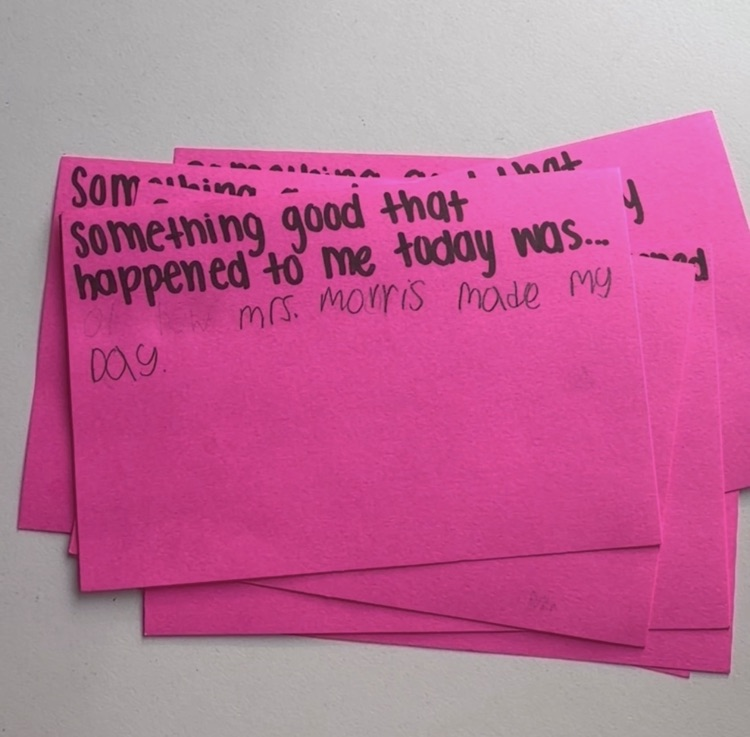 something that
Som
y
something good that
happened to me today was...
mrs. morris made my
Day.